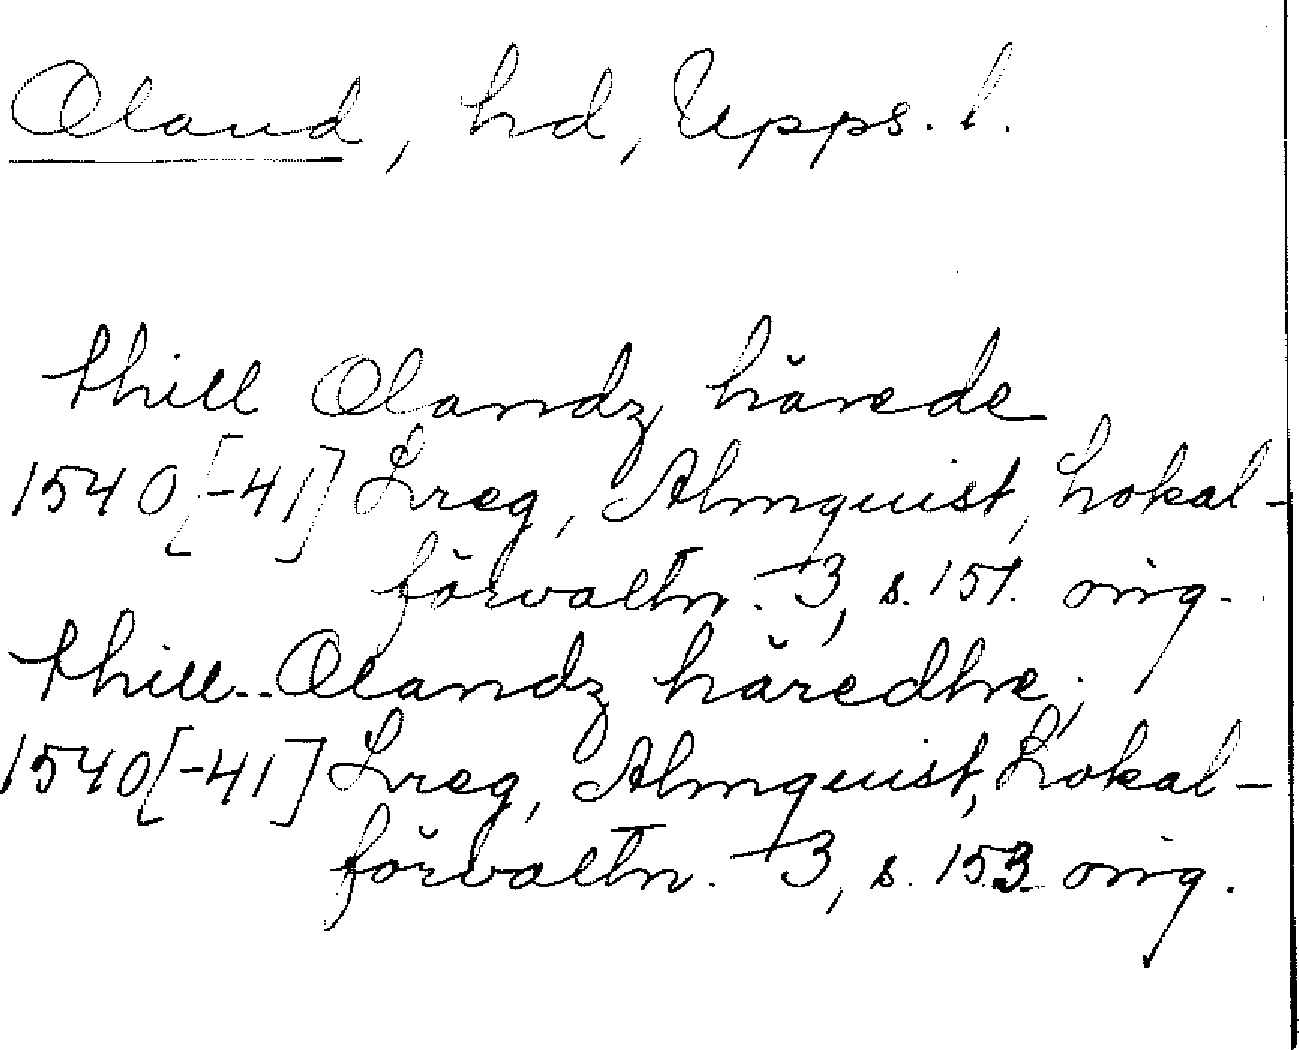 Oland, hd, Upps. l.
thill Olandz härede
1540[-41] Lreg, Almquist, Lokal-
förvaltn. +3, s. 151. orig.
thill Olandz häredhe,
1540[-41] Lreg, Almquist, Lokal-
förvaltn. +3, s. 153. orig.